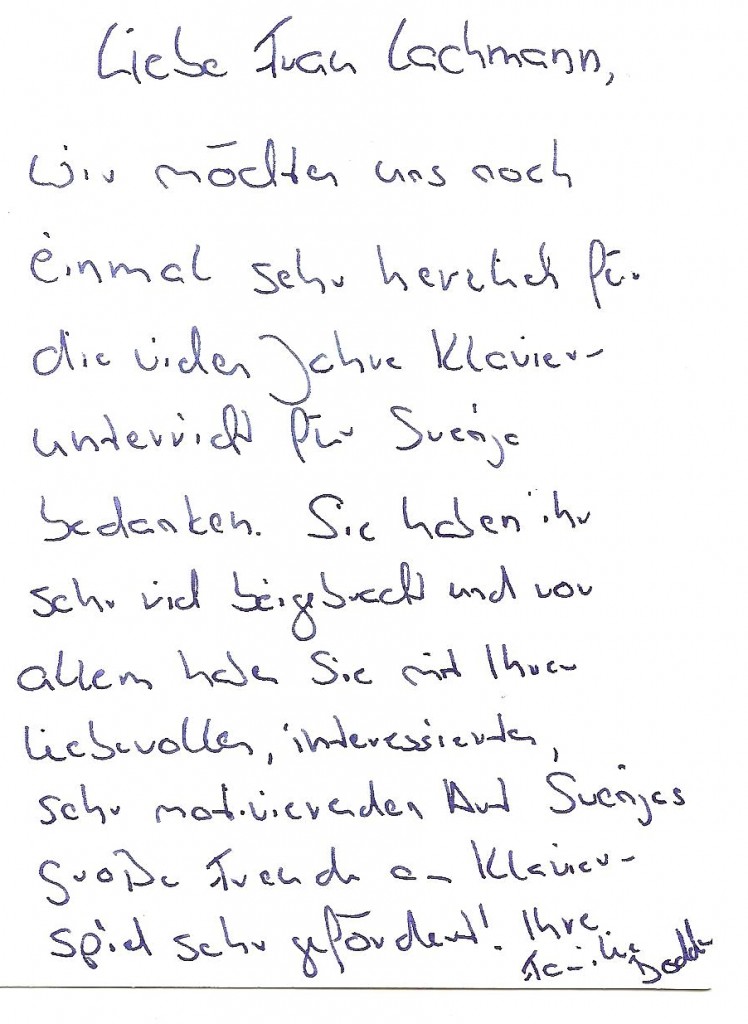 Liebe Frau Lachmann,
wir möchten uns noch
einmal sehr herzlich für
die vielen Jahre Klavier-
unterricht für Svenja
bedanken. Sie haben ihr
sehr viel beigebracht und vor
allem haben Sie mit Ihrer
liebevollen, interessierten,
sehr motivierenden Art Svenjas
große Freude am Klavier-
spiel sehr gefördert! Ihre
Familie